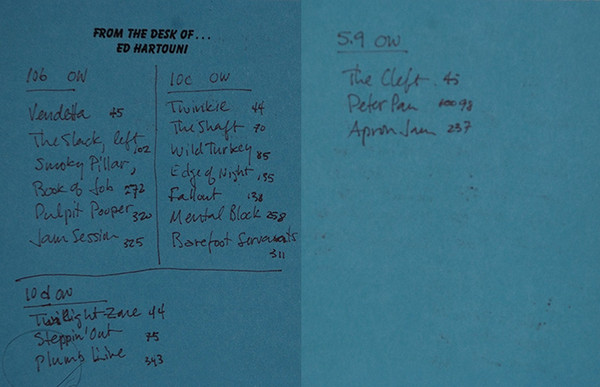 FROM THE DESK OF...
ED HARTOUNI
10b OW
Vendetta 45
The Slack, left 102
Smoky Pillar,
Book of Job 272
Pulpit Pooper 320
Jam Session 325
10c OW
Twinkie 44
The Shaft 70
Wild Turkey 85
Edge of Night 135
Fallout 138
Mental Block 258
Barefoot Servants
311
10d OW
Twilight Zone 44
Steppin' Out 75
Plumb Line 343
5.9 OW
The Cleft. 45
Peter Pan 98
Apron Jam 237